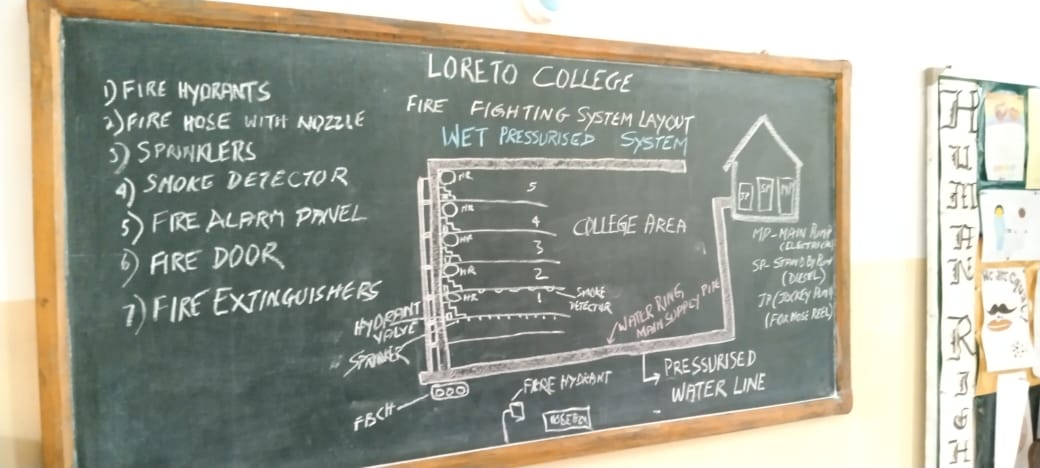 LORETO COLLEGE
FIRE FIGHTING SYSTEM LAYOUT
WET PRESSURISED SYSTEM
1) FIRE HYDRANTS
2) FIRE HOSE WITH NOZZLE
3) SPRINKLERS
4) SMOKE DETECTOR
5) FIRE ALARM PANEL
6) FIRE DOOR
7) FIRE EXTINGUISHERS
HR
5
HR
4
HR
3
HR
2
HR
1
COLLEGE AREA
SMOKE
DETECTOR
HYDRANT
VALVE
WATER RING
MAIN SUPPLY PIPE
PRESSURISED
WATER LINE
FIRE HYDRANT
JP
SP
MP
MP-MAIN PUMP
(ELECTRICAL)
SP-STAND BY PUMP
(DIESEL)
JP (JOCKEY PUMP)
(FOR HOSE REEL)
HUMAN RIGH